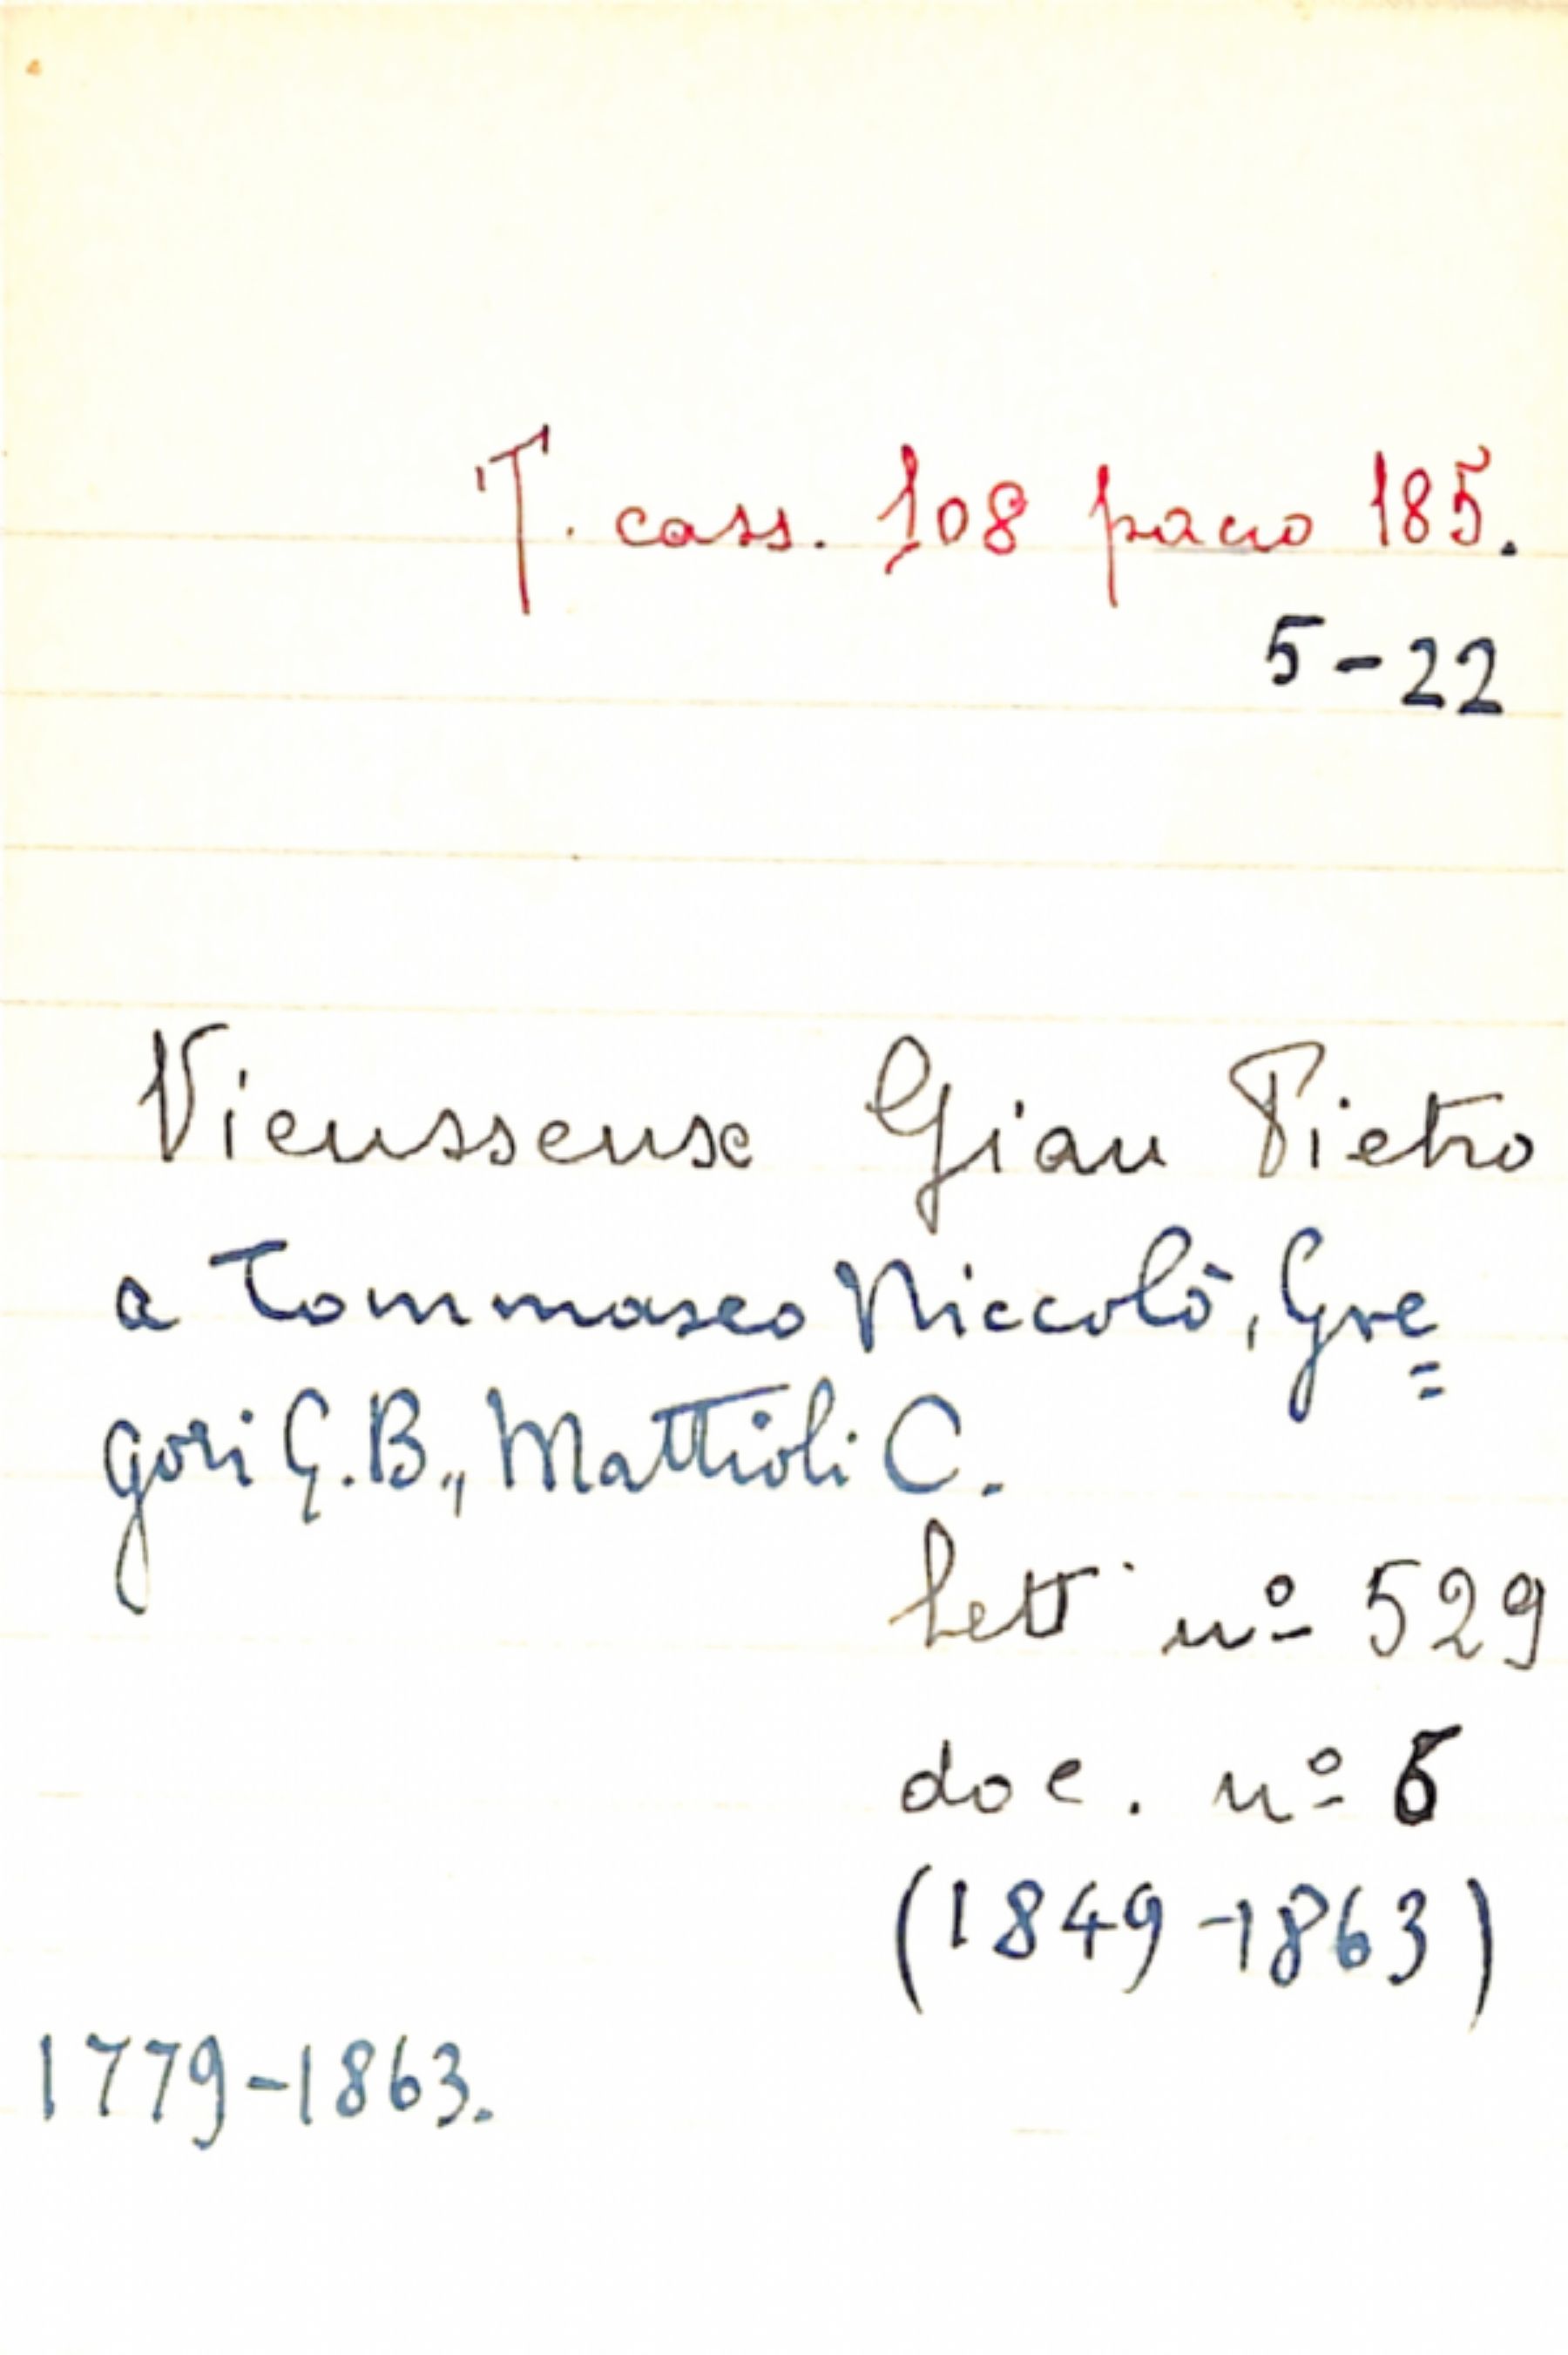 T. cass. 108 pacco 185.
5-22
Vieusseux Gian Pietro
a Tommaseo Niccolò, Gre=
gori G.B., Mattioli C.
Lett. nº 529
doc. nº 6
(1849-1863)
1779-1863.